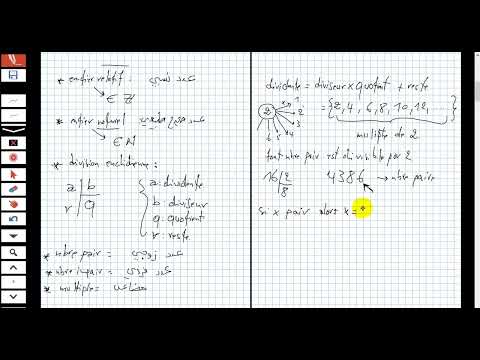 * entier relatif : عدد نسبي
∈ Z
* entier naturel : عدد صحيح طبيعي
∈ N
* division euclidienne :
a | b
r | q
a : dividente
b : diviseur
q : quotient
r : reste
* nbre pair = عدد زوجي
* nbre impair = عدد فردي
* multiple = مضاعف
dividente = diviseur x quotient + reste
2
x 1
2
3
4
5
6
= {2, 4, 6, 8, 10, 12, ......}
multiple de 2
tout nbre pair est divisible par 2
16 | 2
8
4386 → nbre paire
si x pair alors x =